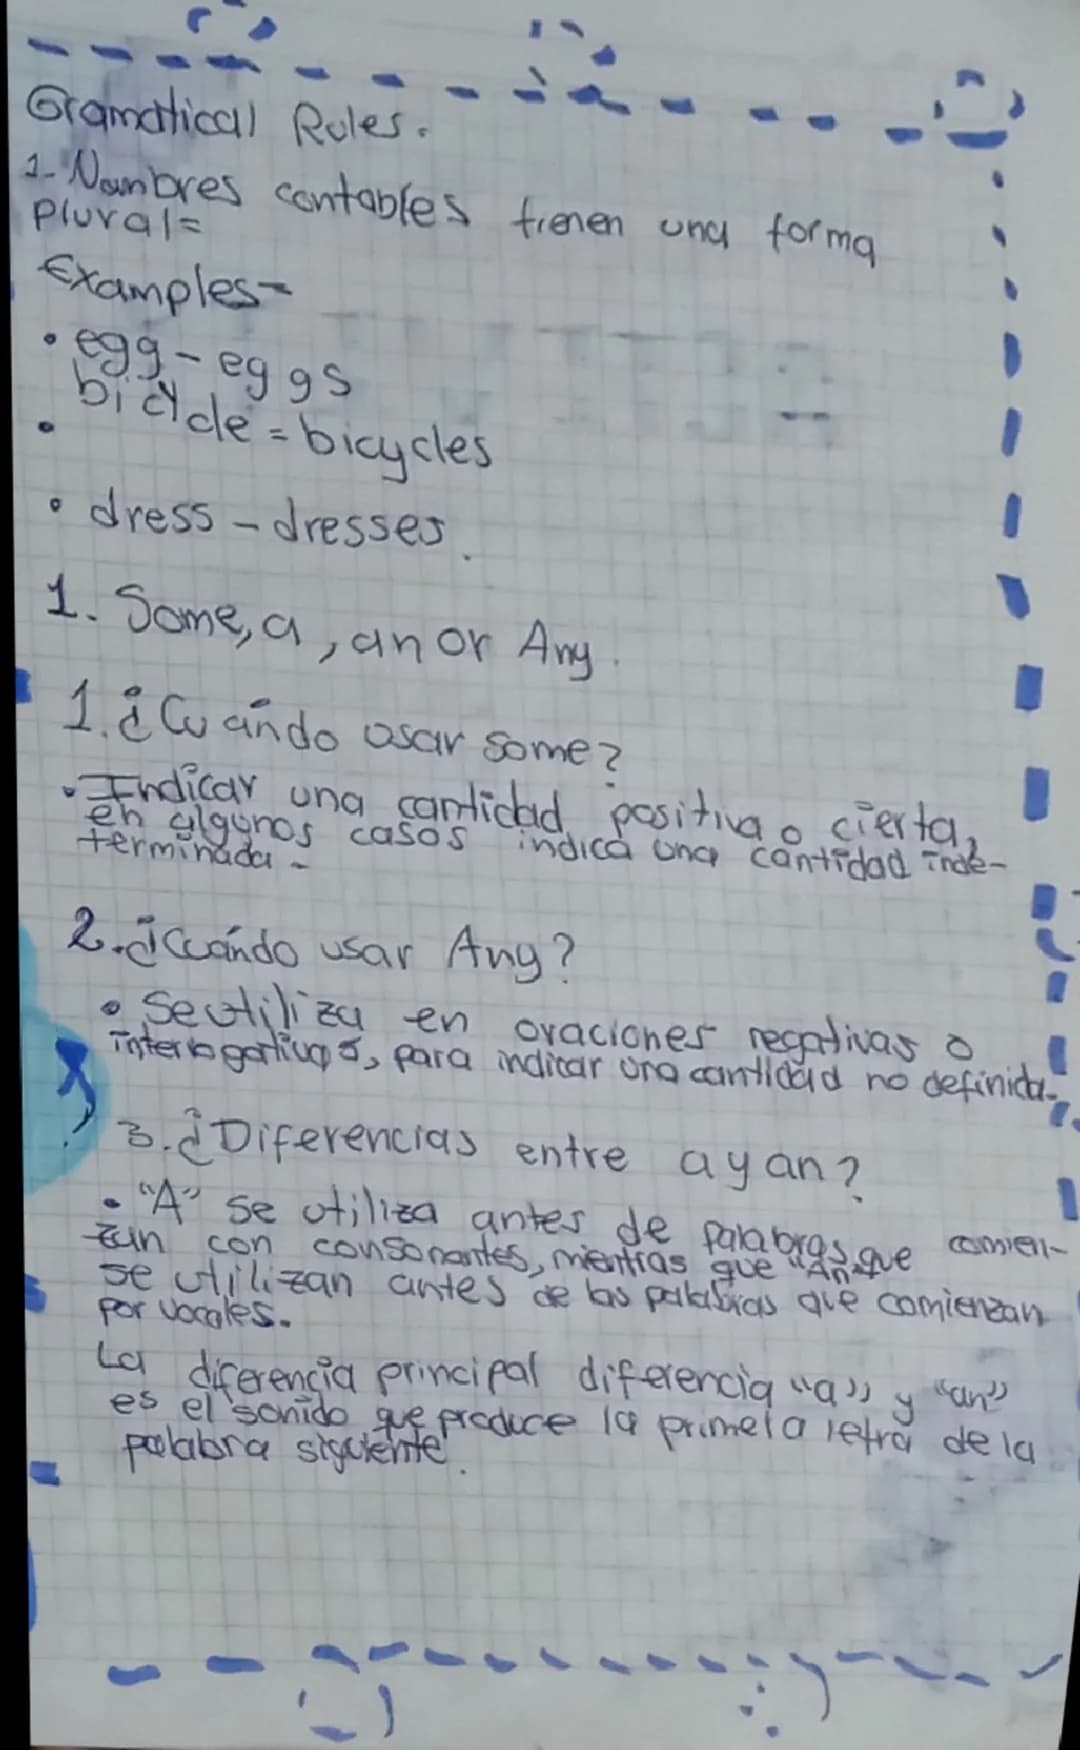 Gramatical Rules.
1- Nombres contables tienen una forma
plural=
Examples=
• egg - eggs
• bicycle = bicycles
• dress - dresses.
1. Some, a, an or Any.
1. ¿Cuándo usar some?
• Indicar una cantidad positiva o cierta,
en algunos casos indica una cantidad inde-
terminada.
2. ¿Cuándo usar Any?
• Se utiliza en oraciones negativas o
interrogativas, para indicar una cantidad no definida.
3. ¿Diferencias entre a y an?
• "A" se utiliza antes de palabras que comien-
zan con consonantes, mientras que "An" que
se utilizan antes de las palabras que comienzan
por vocales.
La diferencia principal diferencia "a" y "an"
es el sonido que produce la primera letra de la
palabra siguiente.